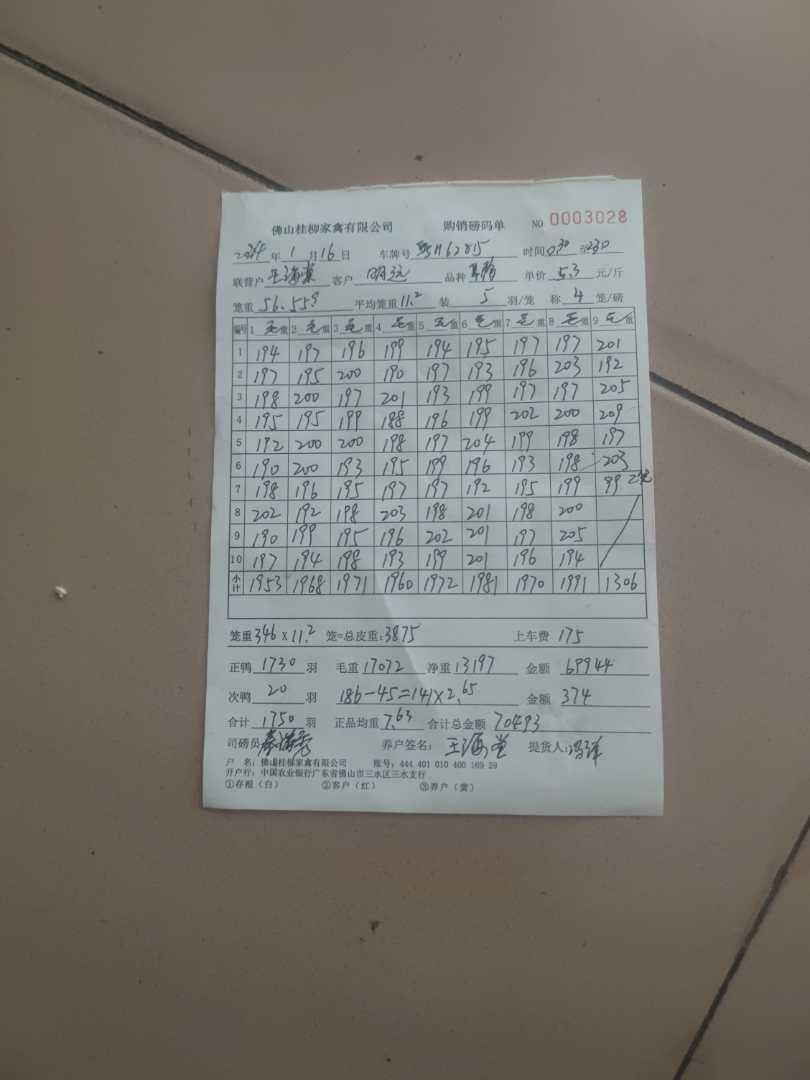 佛山桂柳家禽有限公司 购销磅码单 NO 0003028
年 1 月 16 日 车牌号 H62815 时间 至
联营户 客户 明远 品种 单价 5.3 元/斤
笼重 56.55 平均笼重 11.2 装 5 羽/笼 称 4 笼/磅
编号 1 毛重 2 毛重 3 毛重 4 毛重 5 毛重 6 毛重 7 毛重 8 毛重 9 毛重
1 194 197 196 199 194 195 197 197 201
2 197 195 200 190 197 193 196 203 192
3 198 200 197 201 193 199 197 197 205
4 195 195 199 188 196 199 202 200 209
5 192 200 200 198 197 204 199 198 197
6 190 200 193 195 199 196 193 198 203
7 198 196 195 197 197 192 195 199 99 2笼
8 202 192 198 203 198 201 198 200
9 190 199 195 196 202 201 197 205
10 197 194 198 193 199 201 196 194
小计 1953 1968 1971 1960 1972 1981 1970 1991 1306
笼重 346 × 11.2 笼=总皮重: 3875 上车费 175
正鸭 1730 羽 毛重 17072 净重 13197 金额 69944
次鸭 20 羽 186-45=141×2.65 金额 374
合计 1750 羽 正品均重 7.63 合计总金额 70493
司磅员 养户签名: 提货人:
户 名: 佛山桂柳家禽有限公司 账号: 444 401 010 400 169 29
开户行: 中国农业银行广东省佛山市三水区三水支行
①存根(白) ②客户(红) ③养户(黄)